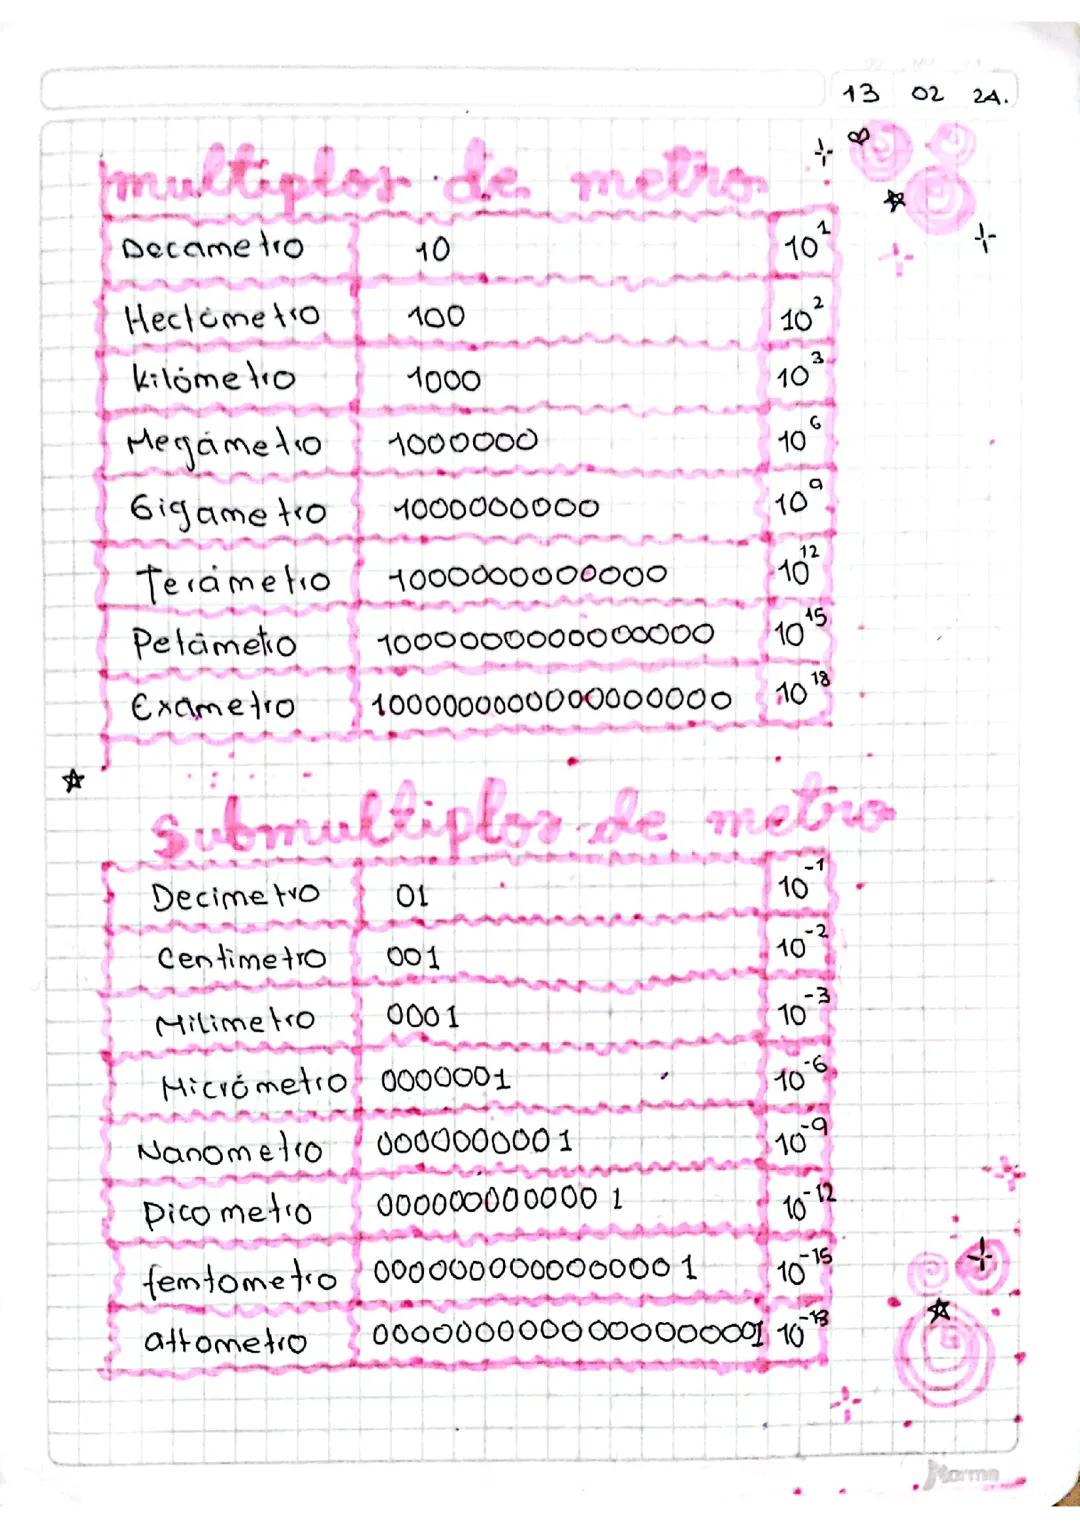 13 02 24.
multiplos de metro
Decametro 10 10¹
Hectómetro 100 10²
Kilómetro 1000 10³
Megámetro 1000000 10⁶
Gigametro 1000000000 10⁹
Terámetro 1000000000000 10¹²
Petámetro 1000000000000000 10¹⁵
Exametro 1000000000000000000 10¹⁸
Submultiplos de metro
Decimetro 01 10⁻¹
Centimetro 001 10⁻²
Milimetro 0001 10⁻³
Micrómetro 0000001 10⁻⁶
Nanometro 0000000001 10⁻⁹
Picometro 0000000000001 10⁻¹²
femtometro 0000000000000001 10⁻¹⁵
attometro 0000000000000000001 10⁻¹⁸
Norma